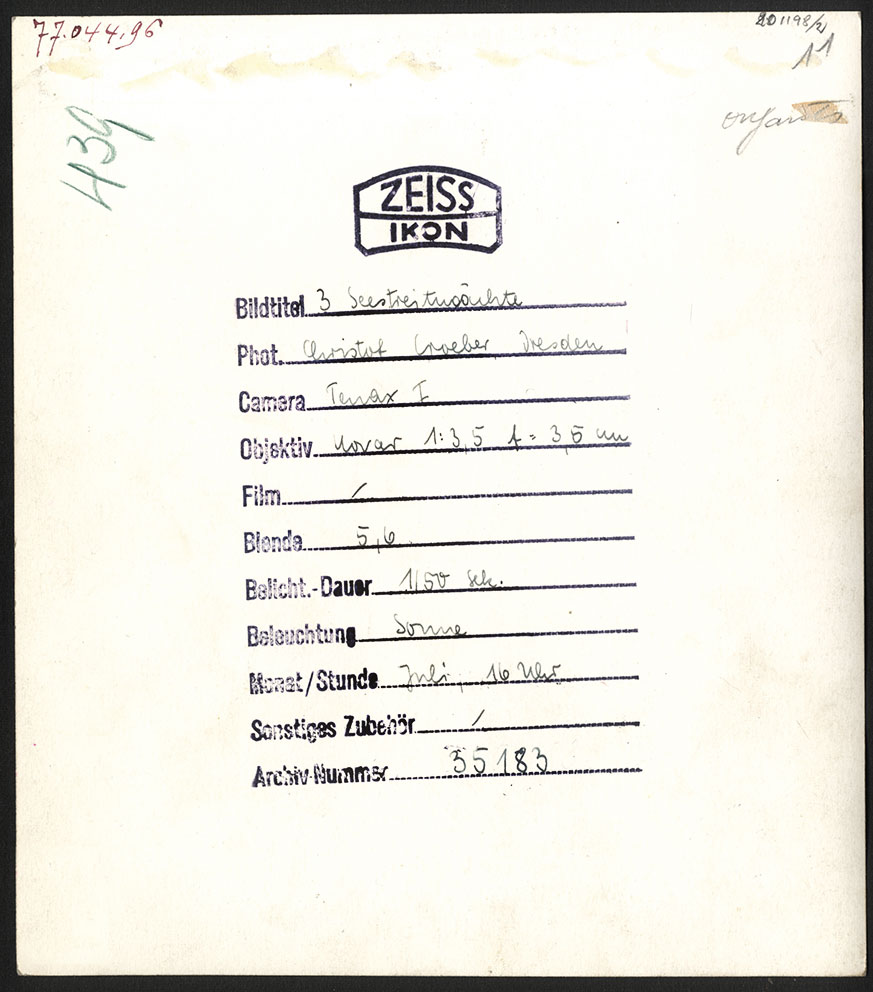 77.044.96
201198/2
11
439
ZEISS
IKON
Bildtitel 3 Seestreitmächte
Phot. Christof Croeber, Dresden
Camera Tenax I
Objektiv Novar 1:3,5 f = 3,5 cm
Film /
Blende 5,6
Belicht.-Dauer 1/50 Sek.
Beleuchtung Sonne
Monat/Stunde Juli, 16 Uhr
Sonstiges Zubehör /
Archiv-Nummer 35183